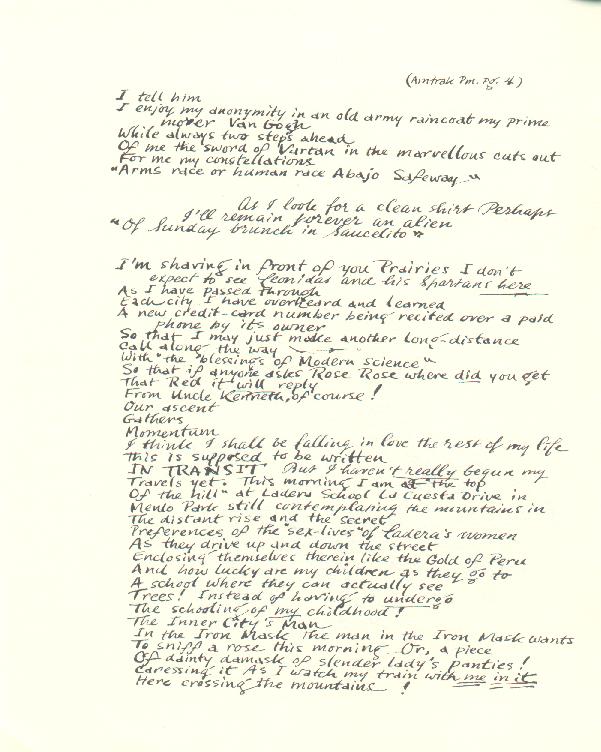 (Amtrak Pm. pg. 4)
I tell him
I enjoy my anonymity in an old army raincoat my prime
mover Van Gogh
While always two steps ahead
Of me the sword of Vartan in the marvellous cuts out
For me my constellations
"Arms race or human race Abajo Safeway..."
As I look for a clean shirt Perhaps
I'll remain forever an alien
"Of Sunday brunch in Saucelito"
I'm shaving in front of you Prairies I don't
expect to see Leonidas and his Spartans here
As I have passed Through
Each city I have overheard and learned
A new credit-card number being recited over a paid
phone by it's owner
So that I may just make another long-distance
Call along the way
With "the "blessings of Modern Science"
So that if anyone asks Rose Rose where did you get
That Red it will reply
From Uncle Kenneth, of course!
Our ascent
Gathers
Momentum
I think I shall be falling in love the rest of my life
This is supposed to be written
IN TRANSIT But I haven't really begun my
Travels yet. This morning I am at "the top
Of the hill" at Ladera School La Cuesta Drive in
Menlo Park still contemplating the mountains in
The distant rise and the secret
Preferences of the "sex-lives" of Ladera's women
As they drive up and down the street
Enclosing themselves therein like the Gold of Peru
And how lucky are my children as they go to
A school where they can actually see
Trees! Instead of having to undergo
The schooling of my childhood!
The Inner City's Man
In the Iron Mask The man in the Iron Mask wants
To sniff a rose this morning Or, a piece
Of dainty damask of slender lady's panties!
Caressing it As I watch my train with me in it
Here crossing the mountains !